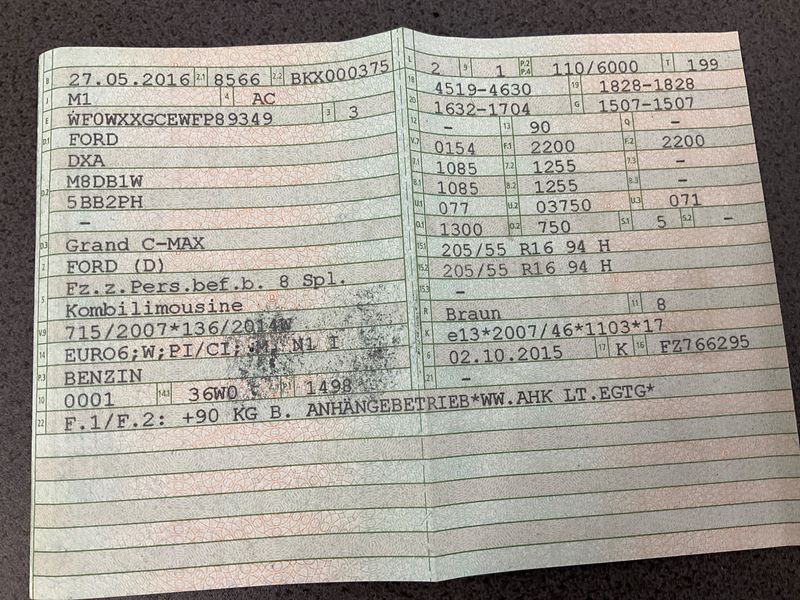 B 27.05.2016 2.1 8566 2.2 BKX000375
J M1 4 AC
E WF0WXXGCEWFP89349 3 3
D.1 FORD
DXA
D.2 M8DB1W
5BB2PH
–
D.3 Grand C-MAX
2 FORD (D)
Fz.z.Pers.bef.b. 8 Spl.
5 Kombilimousine
V.9 715/2007*136/2014W
14 EURO6;W;PI/CI; M, N1 I
P.3 BENZIN
10 0001 14.1 36W0 P.1 1498
22 F.1/F.2: +90 KG B. ANHÄNGEBETRIEB*WW.AHK LT.EGTG*
L 2 9 1 P.2 P.4 110/6000 T 199
18 4519-4630 19 1828-1828
20 1632-1704 G 1507-1507
12 – 13 90 Q –
V.7 0154 F.1 2200 F.2 2200
7.1 1085 7.2 1255 7.3 –
8.1 1085 8.2 1255 8.3 –
U.1 077 U.2 03750 U.3 071
O.1 1300 O.2 750 S.1 5 S.2 –
15.1 205/55 R16 94 H
15.2 205/55 R16 94 H
15.3 –
R Braun 11 8
K e13*2007/46*1103*17
6 02.10.2015 17 K 16 FZ766295
21 –